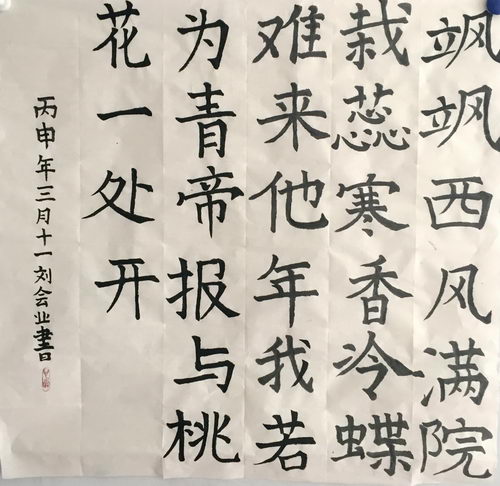 飒飒西风满院
栽蕊寒香冷蝶
难来他年我若
为青帝报与桃
花一处开
丙申年三月十一刘会业书